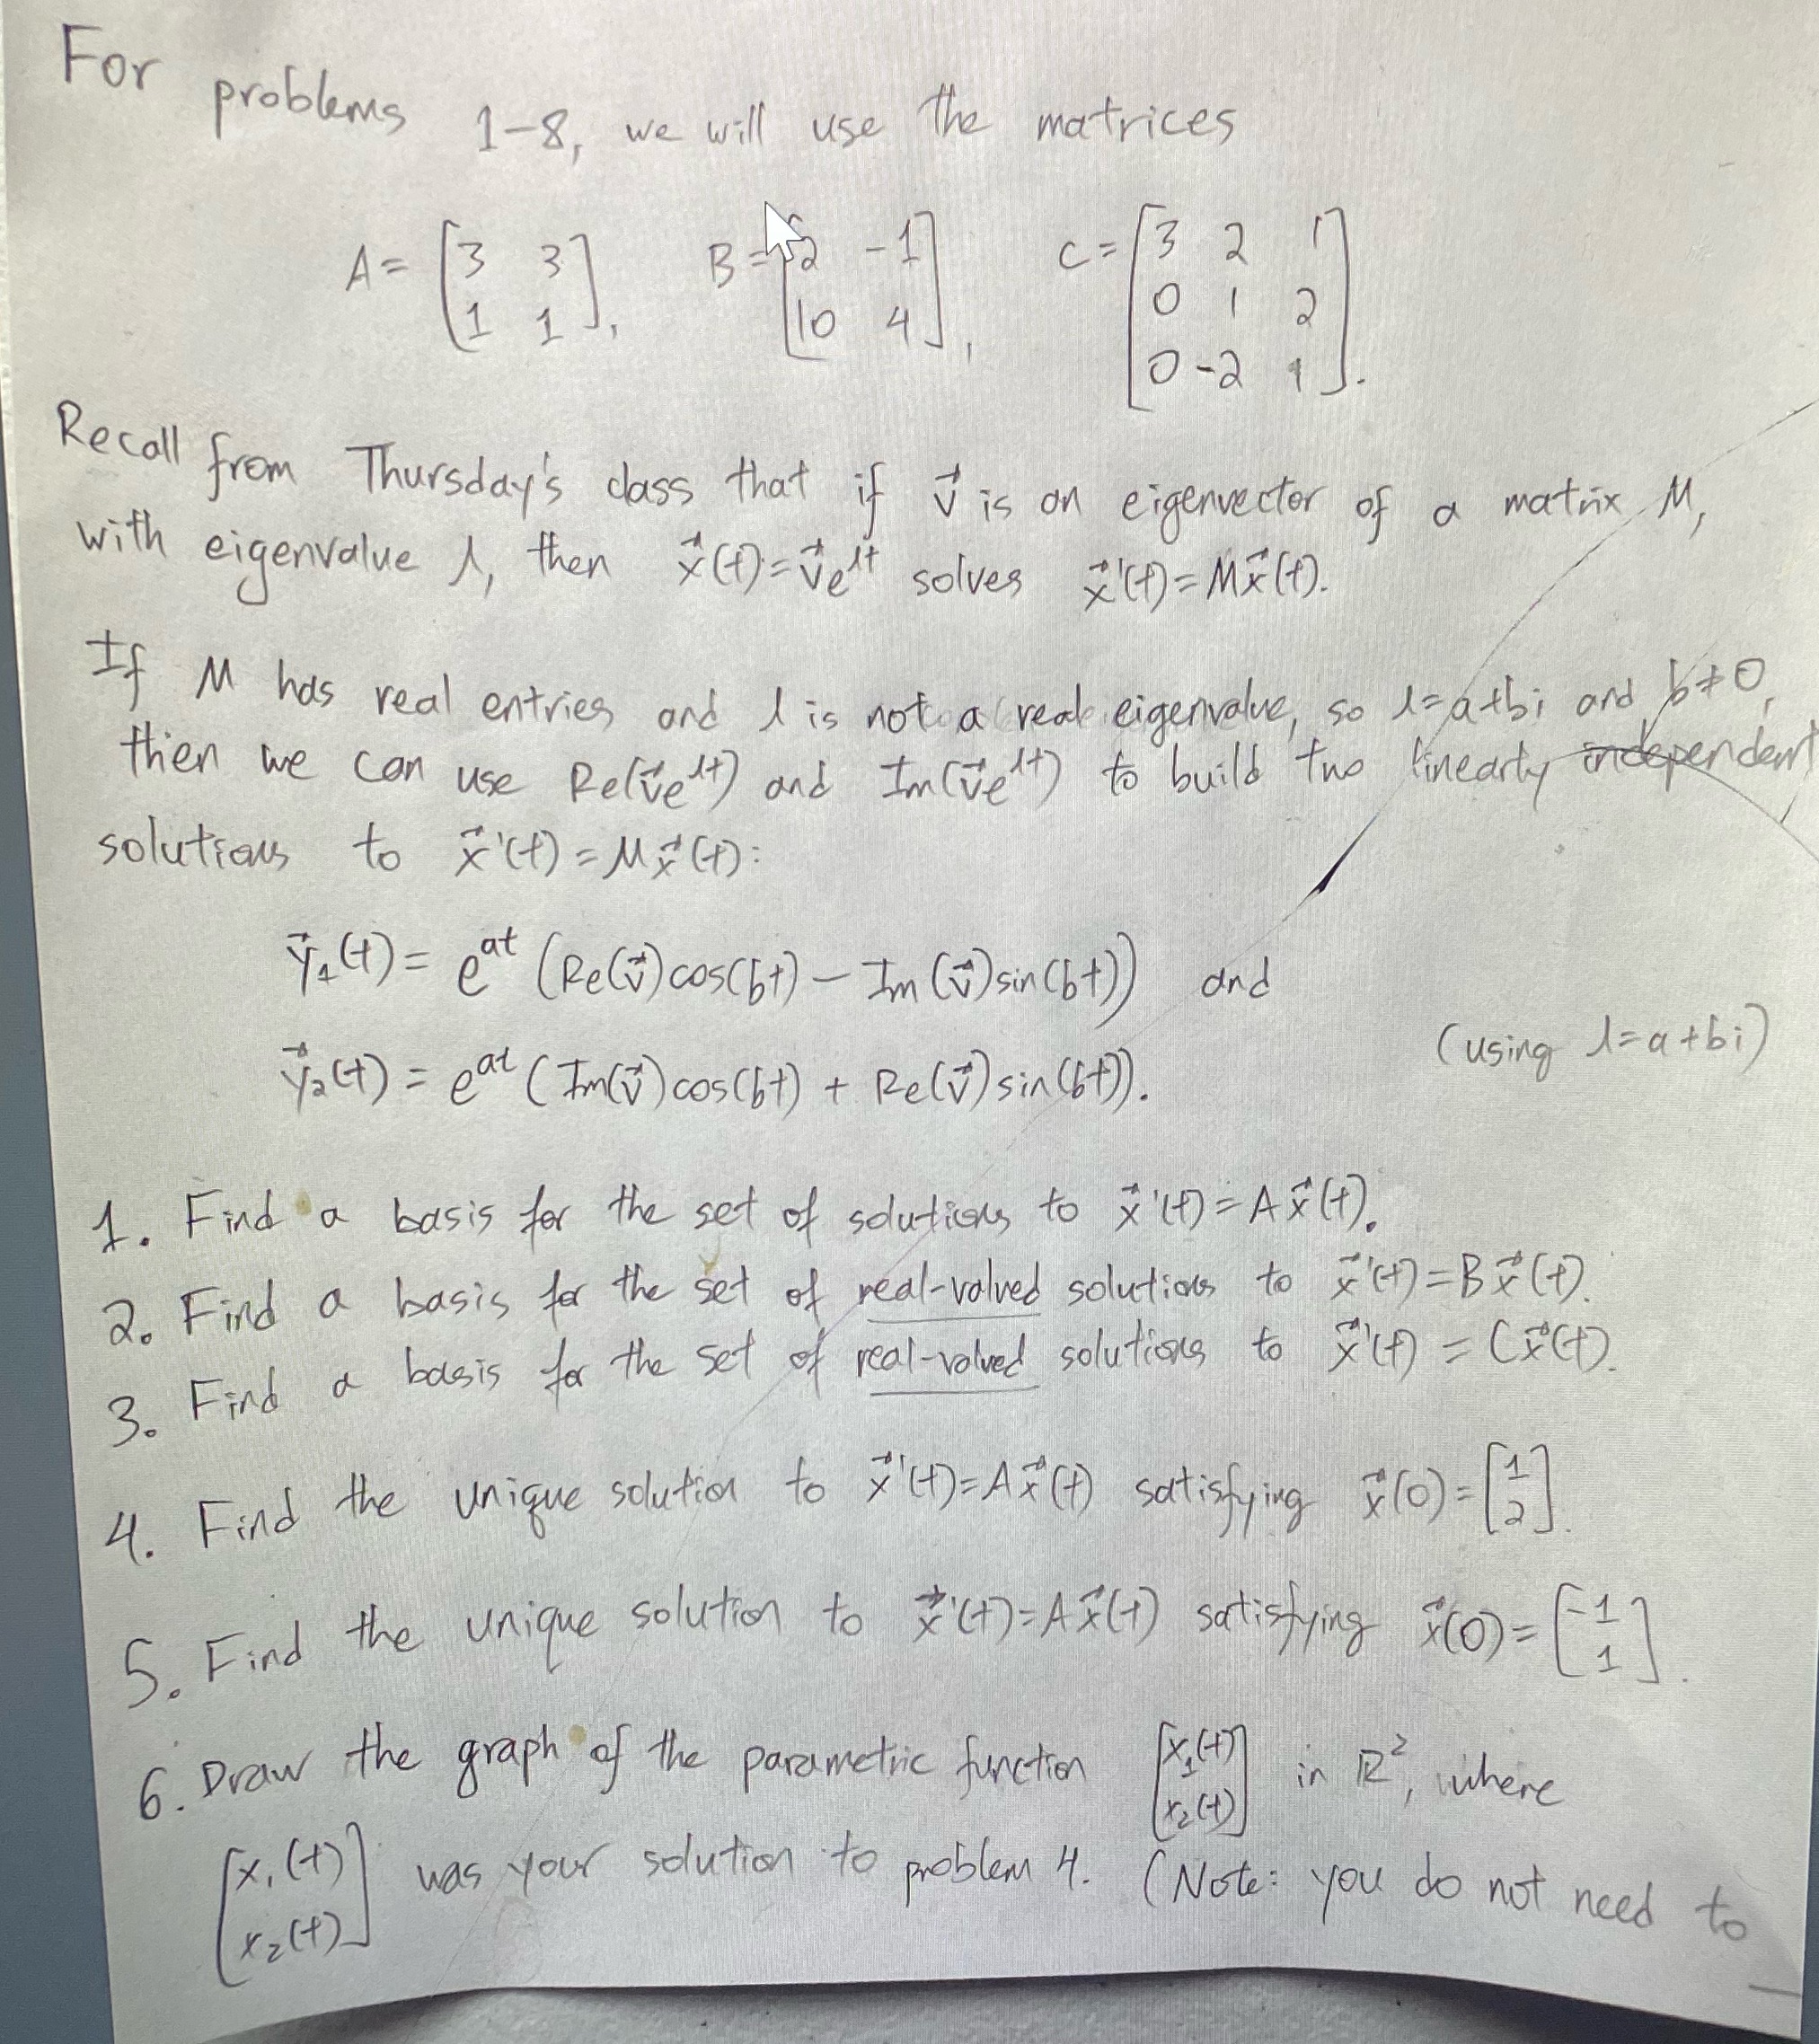 For problems 1-8, we will use the matrices
A = [3 3; 1 1], B = [2 -1; 10 4], C = [3 2 1; 0 1 2; 0 -2 1].
Recall from Thursday's class that if v⃗ is an eigenvector of a matrix M,
with eigenvalue λ, then x⃗(t) = v⃗e^λt solves x⃗'(t) = Mx⃗(t).
If M has real entries and λ is not a real eigenvalue, so λ=a+bi and b≠0,
then we can use Re(v⃗e^λt) and Im(v⃗e^λt) to build two linearly independent
solutions to x⃗'(t) = Mx⃗(t):
y⃗₁(t) = e^at (Re(v⃗)cos(bt) - Im(v⃗)sin(bt)) and
y⃗₂(t) = e^at (Im(v⃗)cos(bt) + Re(v⃗)sin(bt)). (using λ=a+bi)
1. Find a basis for the set of solutions to x⃗'(t) = Ax⃗(t).
2. Find a basis for the set of real-valued solutions to x⃗'(t) = Bx⃗(t).
3. Find a basis for the set of real-valued solutions to x⃗'(t) = Cx⃗(t).
4. Find the unique solution to x⃗'(t) = Ax⃗(t) satisfying x⃗(0) = [1; 2].
5. Find the unique solution to x⃗'(t) = Ax⃗(t) satisfying x⃗(0) = [-1; 1].
6. Draw the graph of the parametric function [x₁(t); x₂(t)] in ℝ², where
[x₁(t); x₂(t)] was your solution to problem 4. (Note: you do not need to